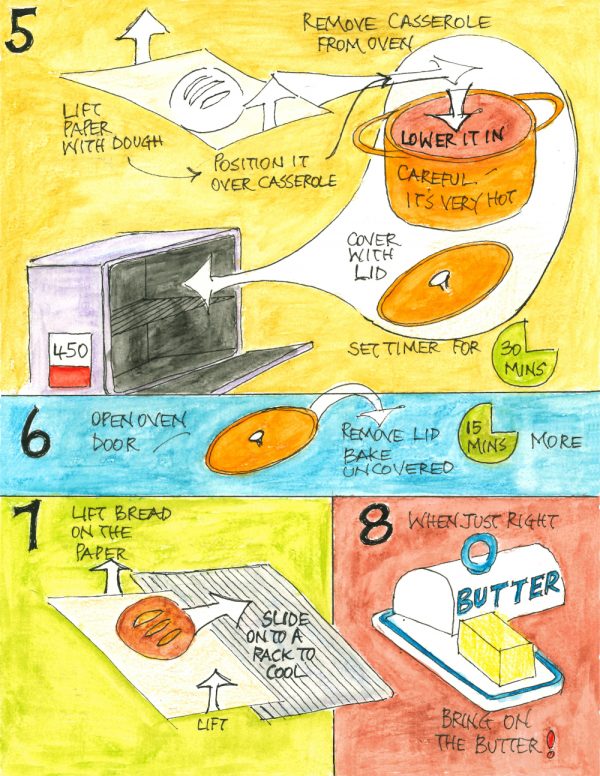 5
REMOVE CASSEROLE
FROM OVEN
LIFT
PAPER
WITH DOUGH
POSITION IT
OVER CASSEROLE
LOWER IT IN
CAREFUL.
IT'S VERY HOT
COVER
WITH
LID
450
SET TIMER FOR
30
MINS
6
OPEN OVEN
DOOR
REMOVE LID
BAKE
UNCOVERED
15
MINS
MORE
7
LIFT BREAD
ON THE
PAPER
SLIDE
ON TO A
RACK TO
COOL
LIFT
8
WHEN JUST RIGHT
BUTTER
BRING ON
THE BUTTER!